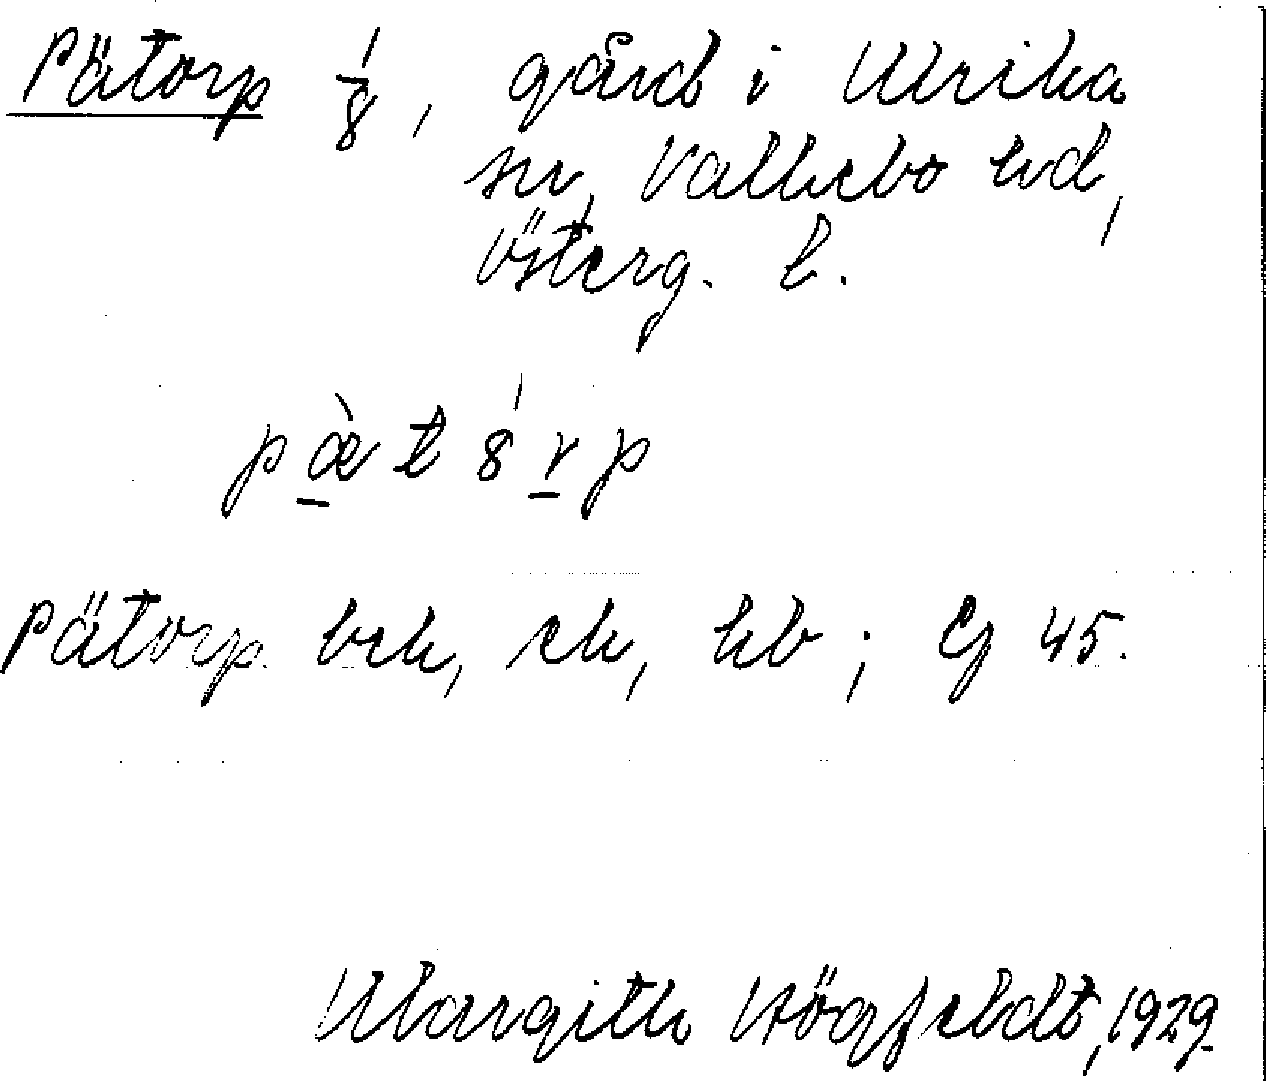 Pätorp 1/8, gård i Ulrika
sn, Vallebo hd,
Österg. l.
p æ̀ t 8́ r p
Pätorp bck, ck, hb; Cg 45.
Margith Högfeldt, 1929